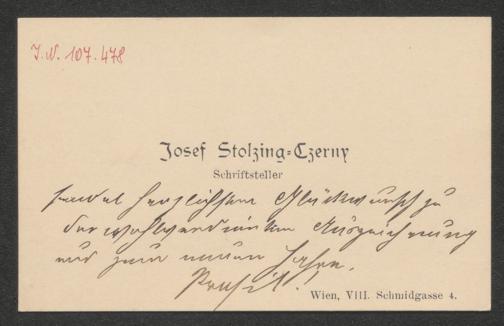 I.N. 107.478
Josef Stolzing-Czerny
Schriftsteller
sendet herzlichsten Glückwunsch zu
der wohlverdienten Auszeichnung
und zum neuen Jahre.
Prosit!
Wien, VIII. Schmidgasse 4.